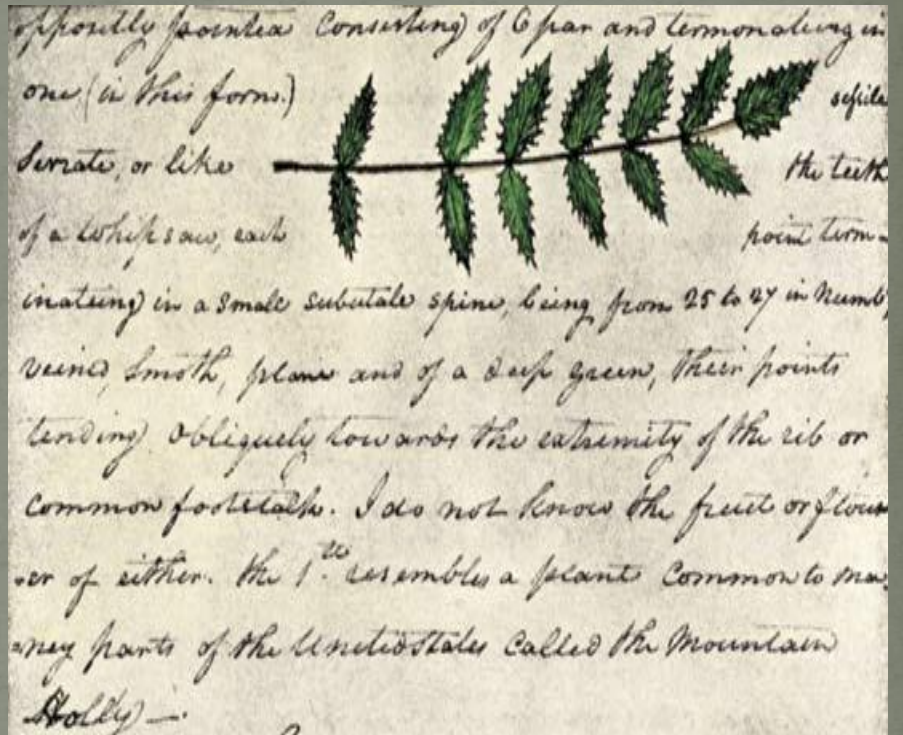 oppositly pointed consisting of 6 par and termonateing in
one (in this form.) sessile
Serrate, or like the teeth
of a whipsaw, each point term-
inateing in a small subutale spine, being from 25 to 27 in Numb,
veined, Smoth, plane and of a deep green, their points
tending obliquely towards the extremity of the rib or
common footstalk. I do not know the fruit or flow
-er of either. the 1st resembles a plant common to ma
-ney parts of the United States called the Mountain
Holly —.